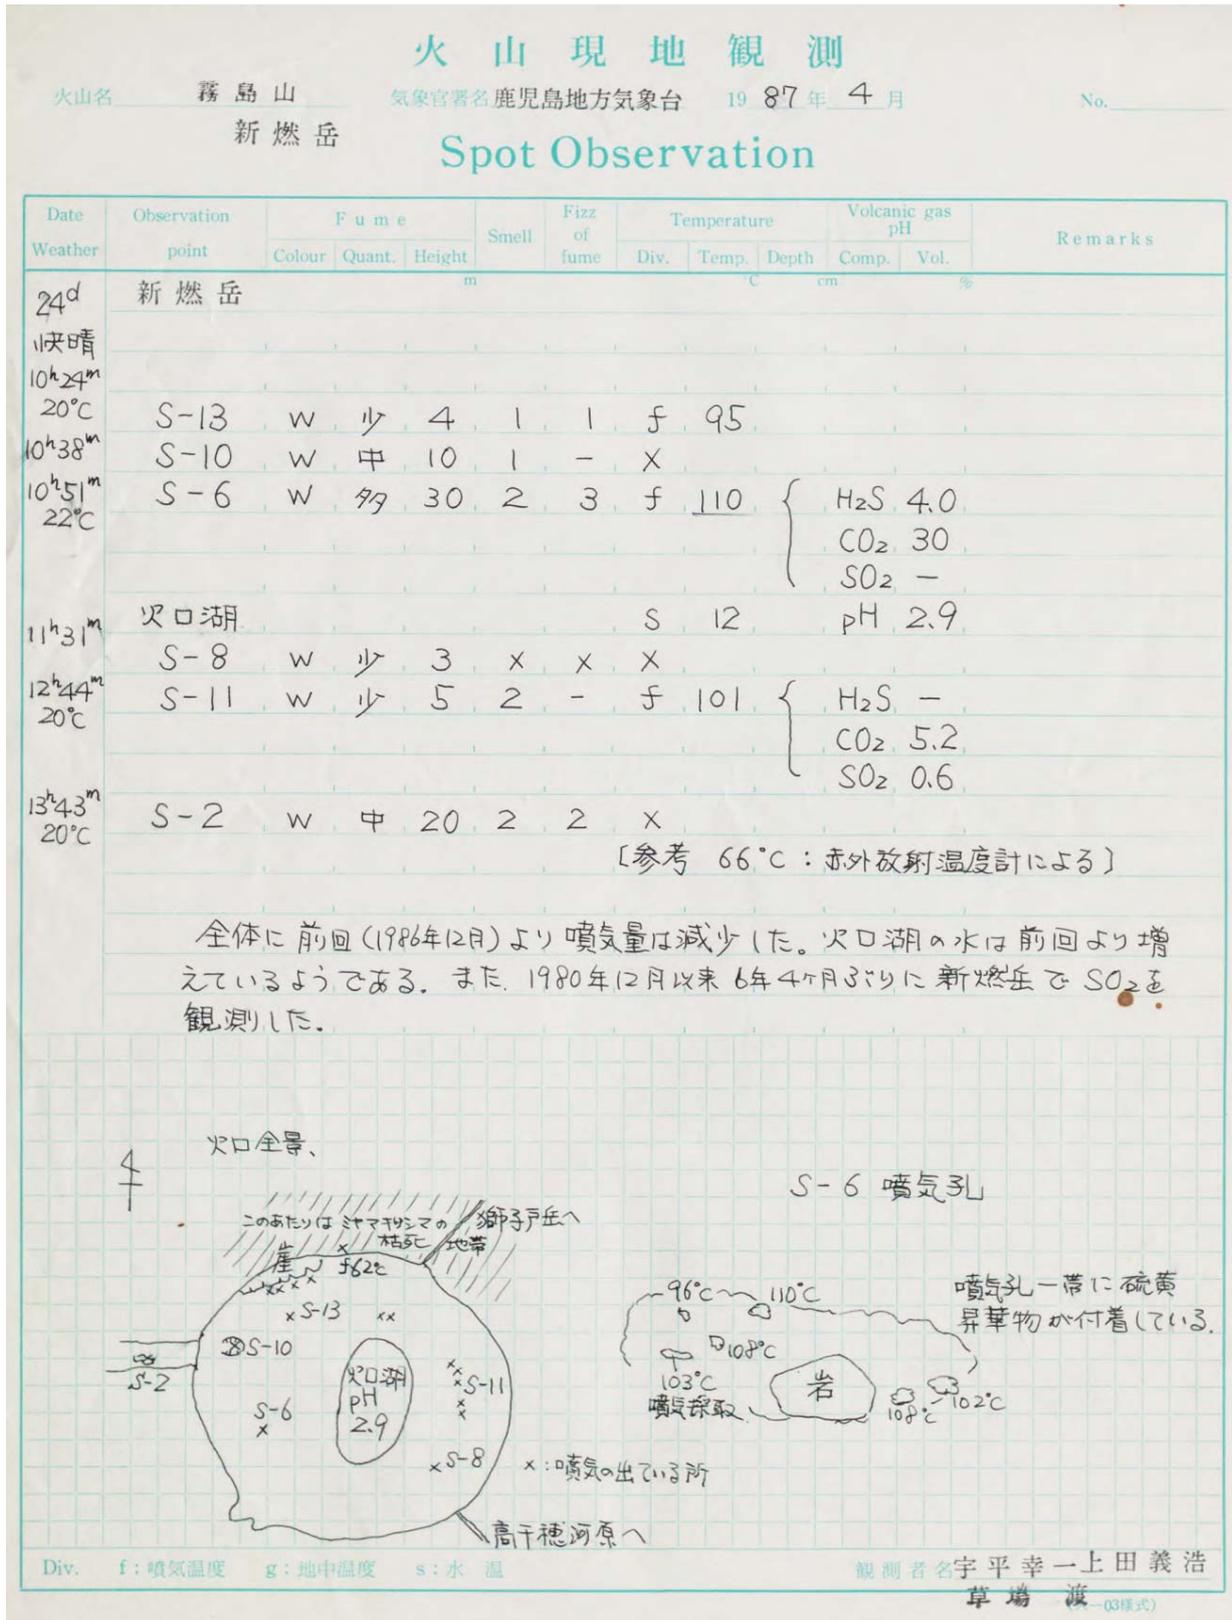 火山現地観測
火山名 霧島山 気象官署名 鹿児島地方気象台 1987年 4月 No.
新燃岳
Spot Observation
Date Weather Observation point Fume Colour Quant. Height Smell Fizz of fume Temperature Div. Temp. Depth Volcanic gas pH Comp. Vol. Remarks
m ℃ cm %
24d 新燃岳
快晴
10h24m
20℃ S-13 W 少 4 1 1 f 95
10h38m S-10 W 中 10 1 − ×
10h51m S-6 W 多 30 2 3 f 110 { H2S 4.0
22℃
CO2 30
SO2 −
11h31m 火口湖 S 12 pH 2.9
S-8 W 少 3 × × ×
12h44m S-11 W 少 5 2 − f 101 { H2S −
20℃
CO2 5.2
SO2 0.6
13h43m S-2 W 中 20 2 2 ×
20℃
〔参考 66℃:赤外放射温度計による〕
全体に前回(1986年12月)より噴気量は減少した。火口湖の水は前回より増
えているようである。また、1980年12月以来6年4ヶ月ぶりに新燃岳でSO2を
観測した。
火口全景、
S-6 噴気孔
このあたりはミヤマキリシマの
枯死 地帯
獅子戸岳へ
崖
× f62℃
×S-13 ××
S-10
S-2
火口湖
pH
2.9
S-11
S-6
×
×S-8
×:噴気の出ている所
高千穂河原へ
96℃ 110℃
108℃
103℃
噴気採取
岩
108℃ 102℃
噴気孔一帯に硫黄
昇華物が付着している.
Div. f:噴気温度 g:地中温度 s:水温 観測者名 宇平幸一 上田義浩
草場 渡
-03様式)